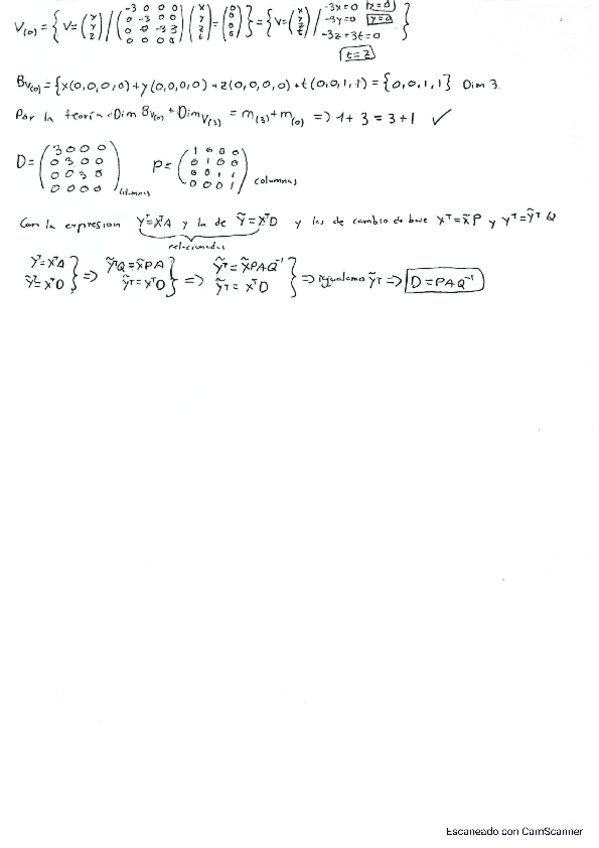 V(0) = { V = (x y z) / (-3 0 0 0 / 0 -3 0 0 / 0 0 -3 3 / 0 0 0 0) (x y z t) = (0 0 0 0) } = { V = (x y z t) / -3x=0 x=0 -3y=0 y=0 -3z+3t=0 t=z }
Bv(0) = {x(0,0,0,0)+y(0,0,0,0)+z(0,0,0,0)+t(0,0,1,1) = {0,0,1,1} Dim 3.
Por la teoría Dim Bv(0) + Dim V(3) = m(3)+m(0) => 1+3 = 3+1 ✓
D = (3 0 0 0 / 0 3 0 0 / 0 0 3 0 / 0 0 0 0) columnas P = (1 0 0 0 / 0 1 0 0 / 0 0 1 1 / 0 0 0 1) columnas
Con la expresion Yᵀ=XᵀA y la de Ỹ=XᵀD y las de cambio de base Xᵀ=X̃P y Yᵀ=ỸᵀQ
relacionadas
Yᵀ=XᵀA Ỹᵀ=XᵀD } => ỸᵀQ=X̃PA Ỹᵀ=XᵀD } => Ỹᵀ=X̃PAQ⁻¹ Ỹᵀ=XᵀD } => igualamo Ỹᵀ => D=PAQ⁻¹
Escaneado con CamScanner